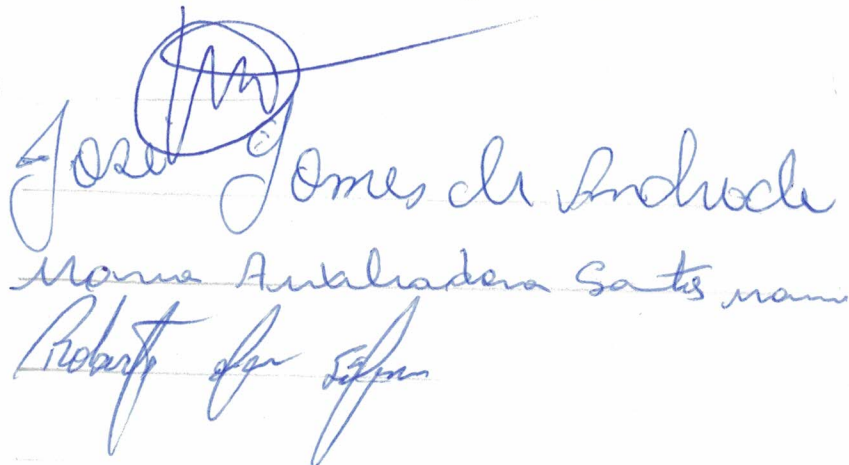 José Gomes de Andrade
Maria Auxiliadora Santos
Roberto